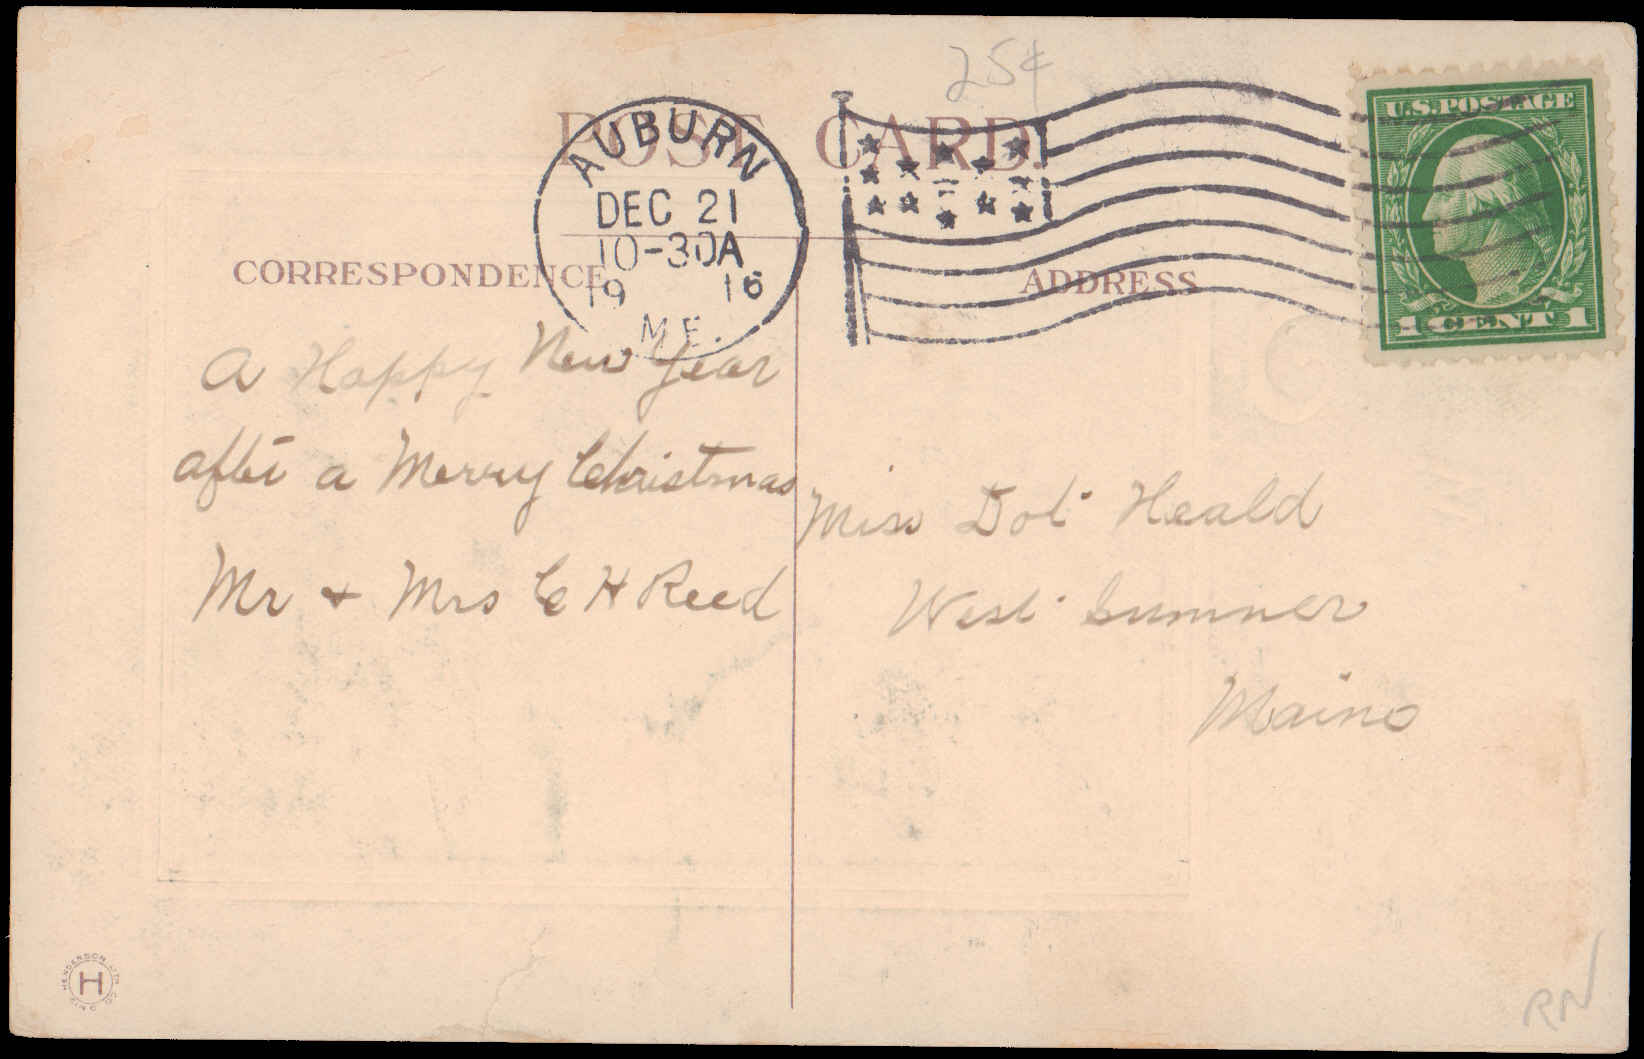 25¢
POST CARD.
AUBURN
DEC 21
10-30A
19 16
ME.
U.S. POSTAGE
1 CENT 1
CORRESPONDENCE
ADDRESS
A Happy New Year
after a Merry Christmas
Mr + Mrs C H Reed
Miss Dot Heald
West Sumner
Maine
HENDERSON LITH CO
H
RN